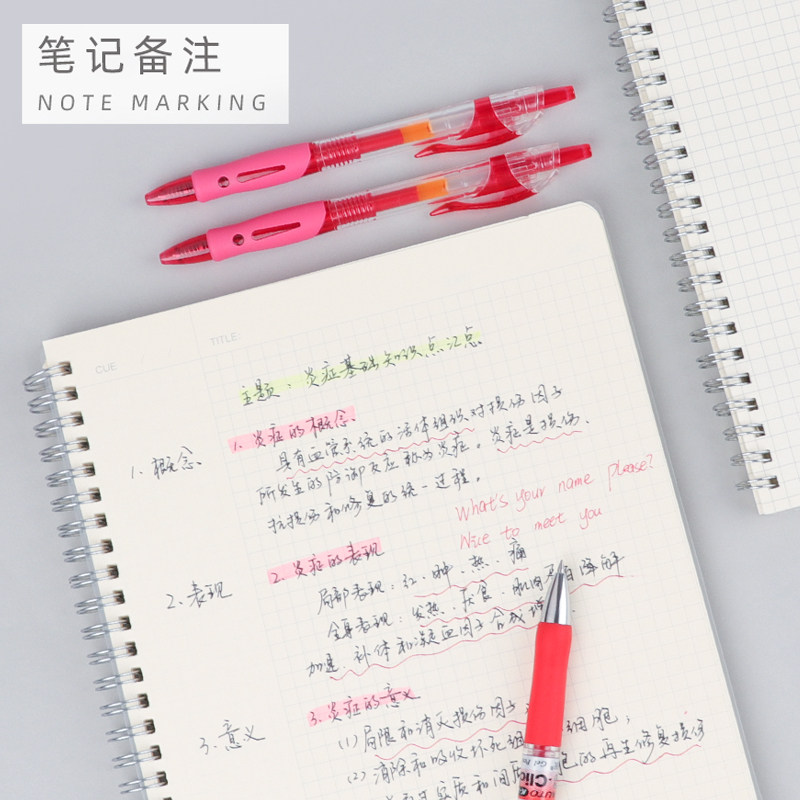 笔记备注
NOTE MARKING
CUE
TITLE
主题：炎症基础知识点汇总
1. 概念
1. 炎症的概念
具有血管系统的活体组织对损伤因子
所发生的防御反应称为炎症。炎症是损伤、
抗损伤和修复的统一过程。
What's your name please?
Nice to meet you
2. 表现
2. 炎症的表现
局部表现：红、肿、热、痛
全身表现：发热、厌食、肌肉蛋白降解
加速、补体和凝血因子合成增
3. 意义
3. 炎症的意义
(1) 局限和消灭损伤因子
细胞；
(2) 清除和吸收坏死组
实质和间质细胞的再生修复损伤
Clic